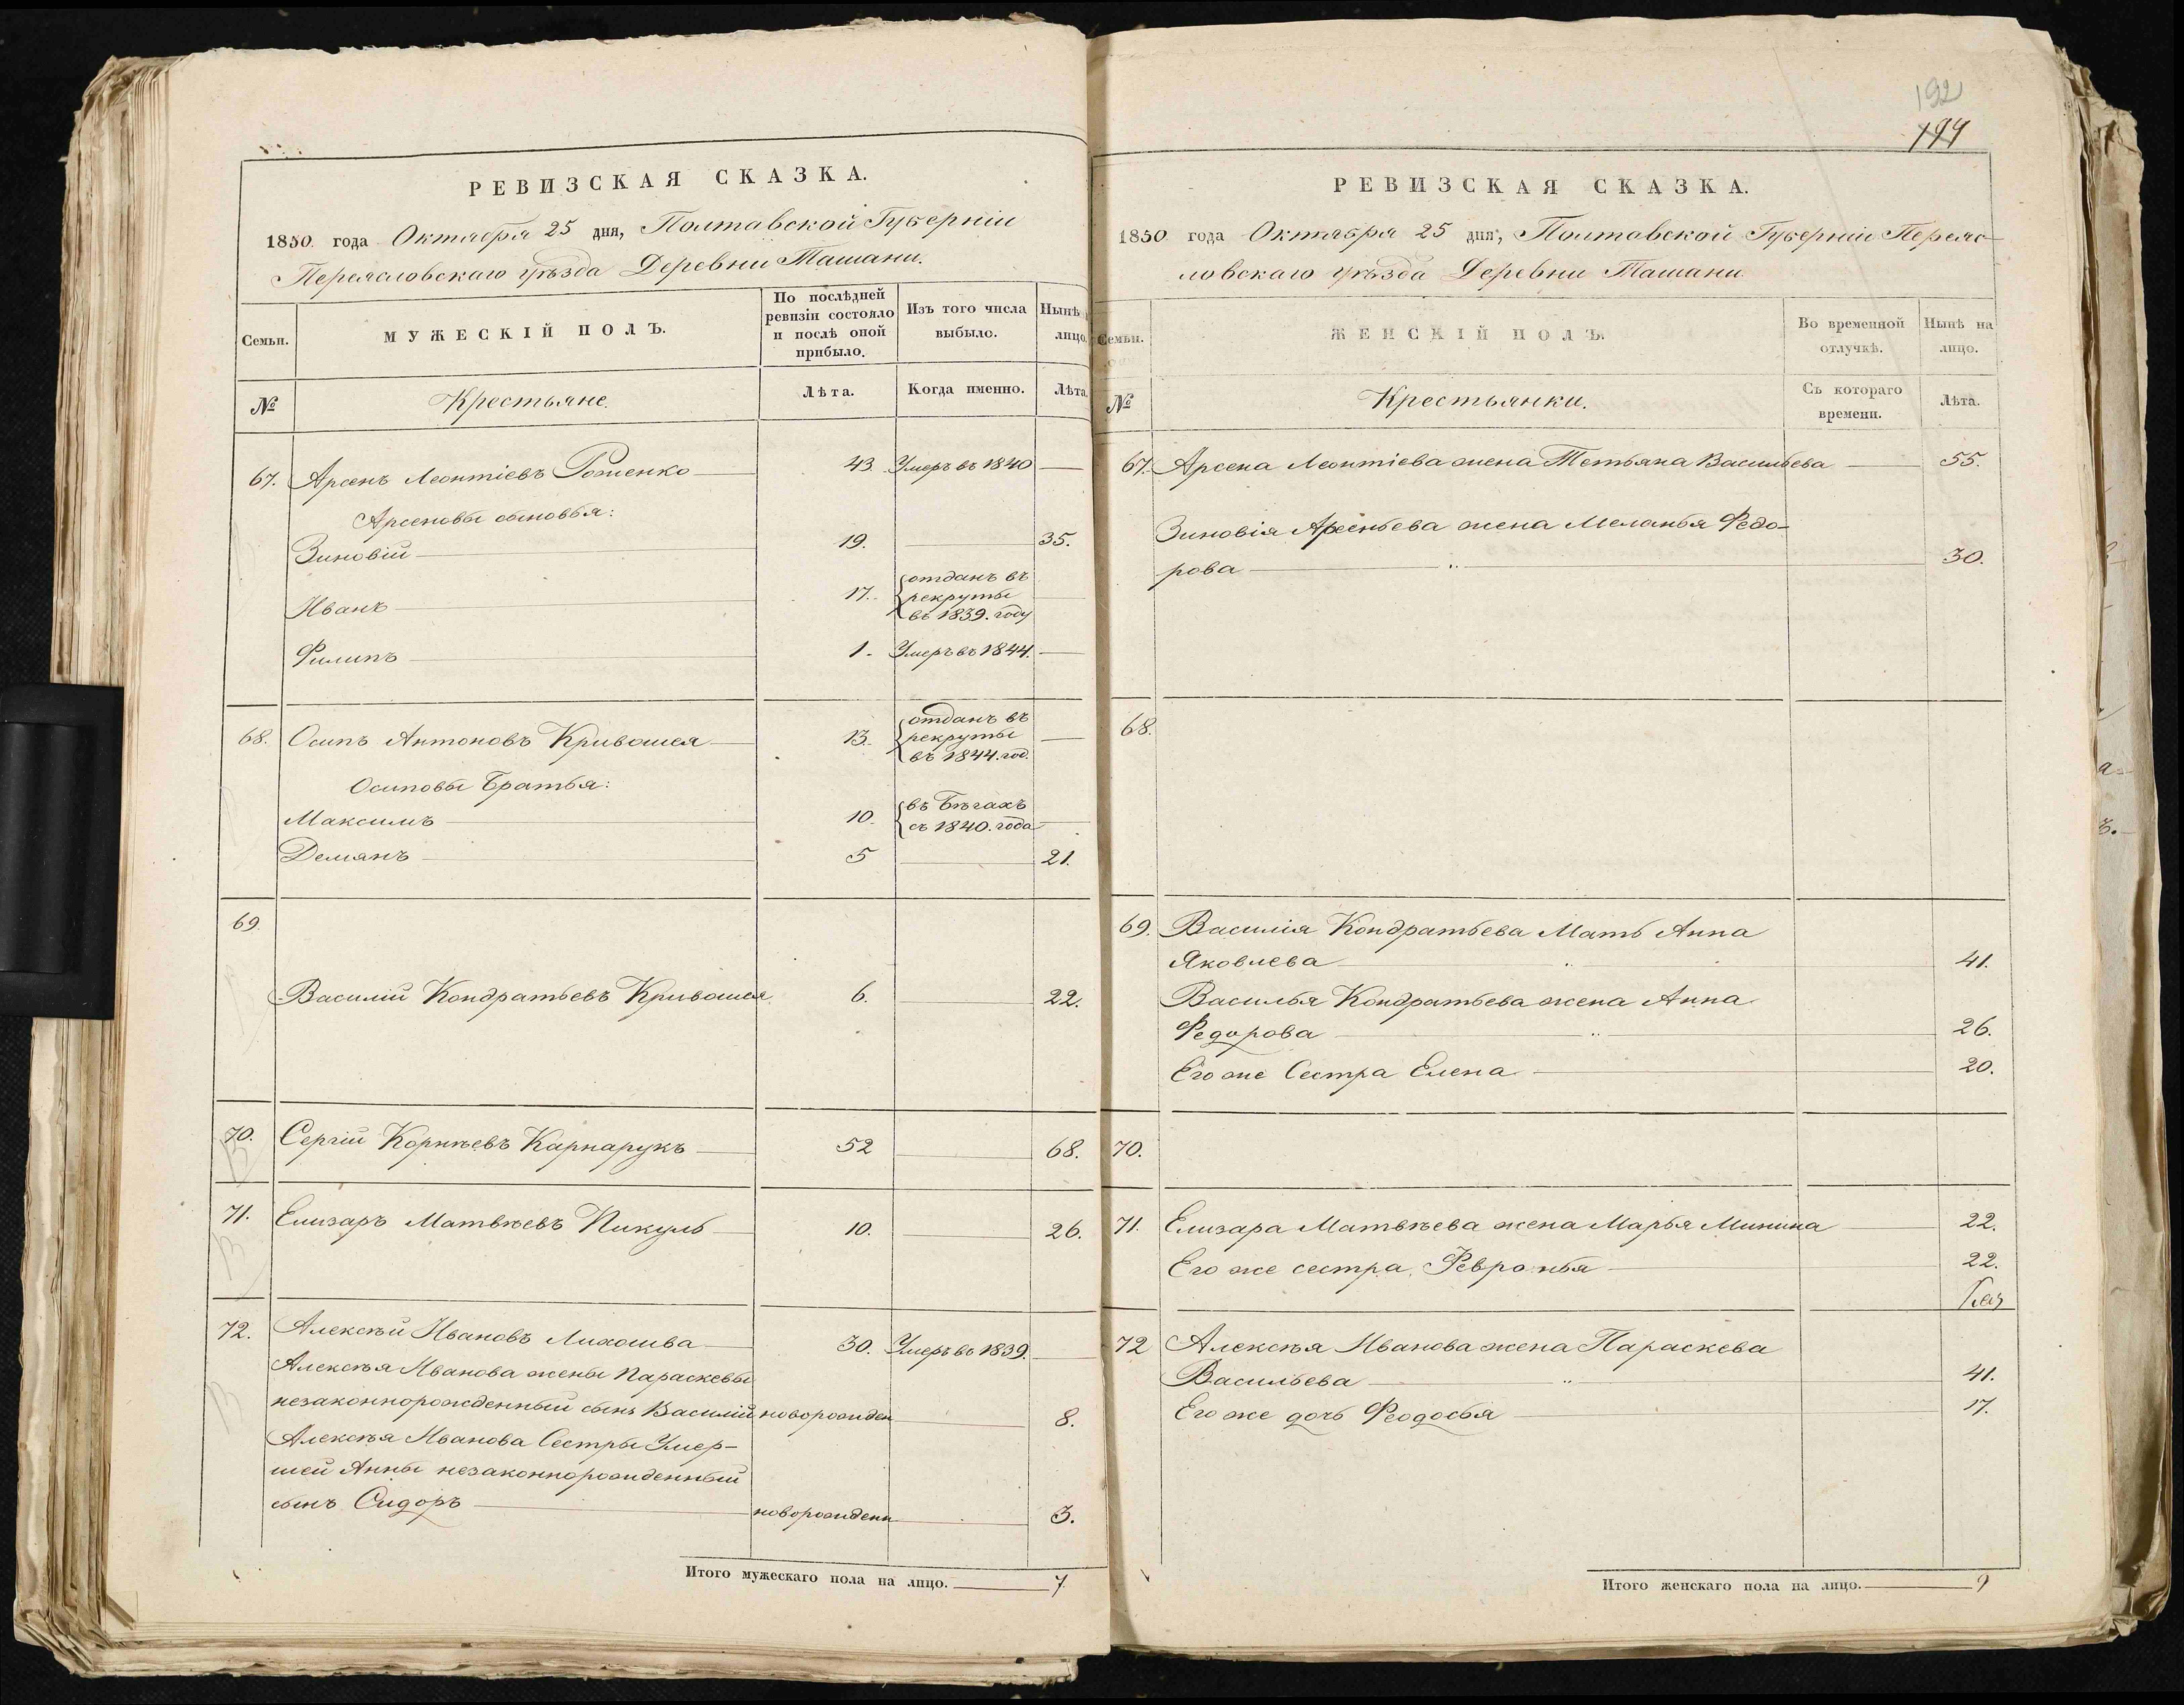 РЕВИЗСКАЯ СКАЗКА.
1850 года Октября 25 дня, Полтавской Губерніи
Переясловскаго уѣзда Деревни Ташани.
Семьи.
МУЖЕСКІЙ ПОЛЪ.
По послѣдней
ревизіи состояло
и послѣ оной
прибыло.
Изъ того числа
выбыло.
Нынѣ
лицо.
№
Крестьяне.
Лѣта.
Когда именно.
Лѣта.
67. Арсенъ Леонтіевъ Роженко 43. Умеръ въ 1840
Арсеновы сыновья:
Зиновій 19. 35.
Иванъ 17. отданъ въ
рекруты
въ 1839. году
Филипъ 1. Умеръ въ 1844.
68. Осипъ Антоновъ Кривошея 13. отданъ въ
рекруты
въ 1844. год.
Осиповы братья:
Максимъ 10. въ бѣгахъ
съ 1840. года
Демянъ 5 21.
69
Василій Кондратьевъ Кривошея. 6. 22.
70. Сергій Корнѣевъ Карнарукъ 52 68.
71. Елизаръ Матвѣевъ Пикуль 10. 26.
72. Алексѣй Ивановъ Лихошва 30. Умеръ въ 1839.
Алексѣя Иванова жены Параскевы
незаконнорожденный сынъ Василій новорожден 8.
Алексѣя Иванова Сестры Умер-
шей Анны незаконнорожденный
сынъ Сидоръ новорожденн 3.
Итого мужескаго пола на лицо. 7
192
194
РЕВИЗСКАЯ СКАЗКА.
1850 года Октября 25 дня, Полтавской Губерніи Переяс-
ловскаго уѣзда Деревни Ташани
Семьи.
ЖЕНСКІЙ ПОЛЪ.
Во временной
отлучкѣ.
Нынѣ на
лицо.
№
Крестьянки.
Съ котораго
времени.
Лѣта.
67. Арсена Леонтіева жена Тетьяна Васильева 55.
Зиновія Арсеньева жена Меланья Федо-
рова 30.
68.
69. Василія Кондратьева Мать Анна
Яковлева 41.
Василья Кондратьева жена Анна
Федорова 26.
Его же Сестра Елена 20.
70.
71. Елизара Матвѣева жена Марья Минина 22.
Его же сестра Февронья 22.
72 Алексѣя Иванова жена Параскева
Васильева 41.
Его же дочь Феодосья 17.
Итого женскаго пола на лицо. 9